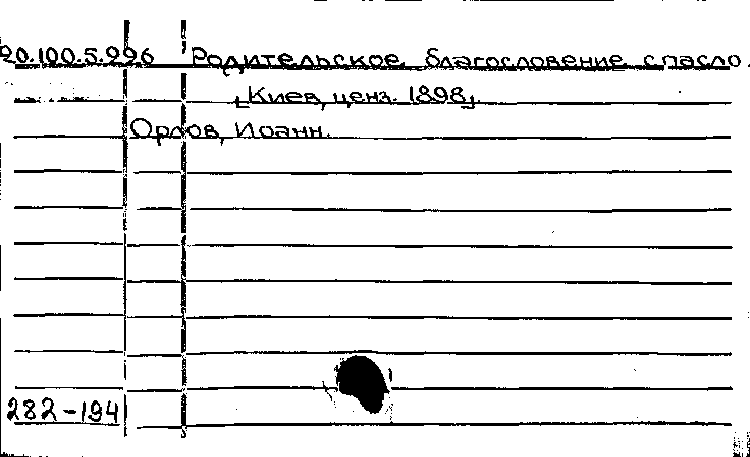 20.100.5.296 Родительское благословение спасло.
[Киев, ценз. 1898].
Орлов, Иоанн.
282-194